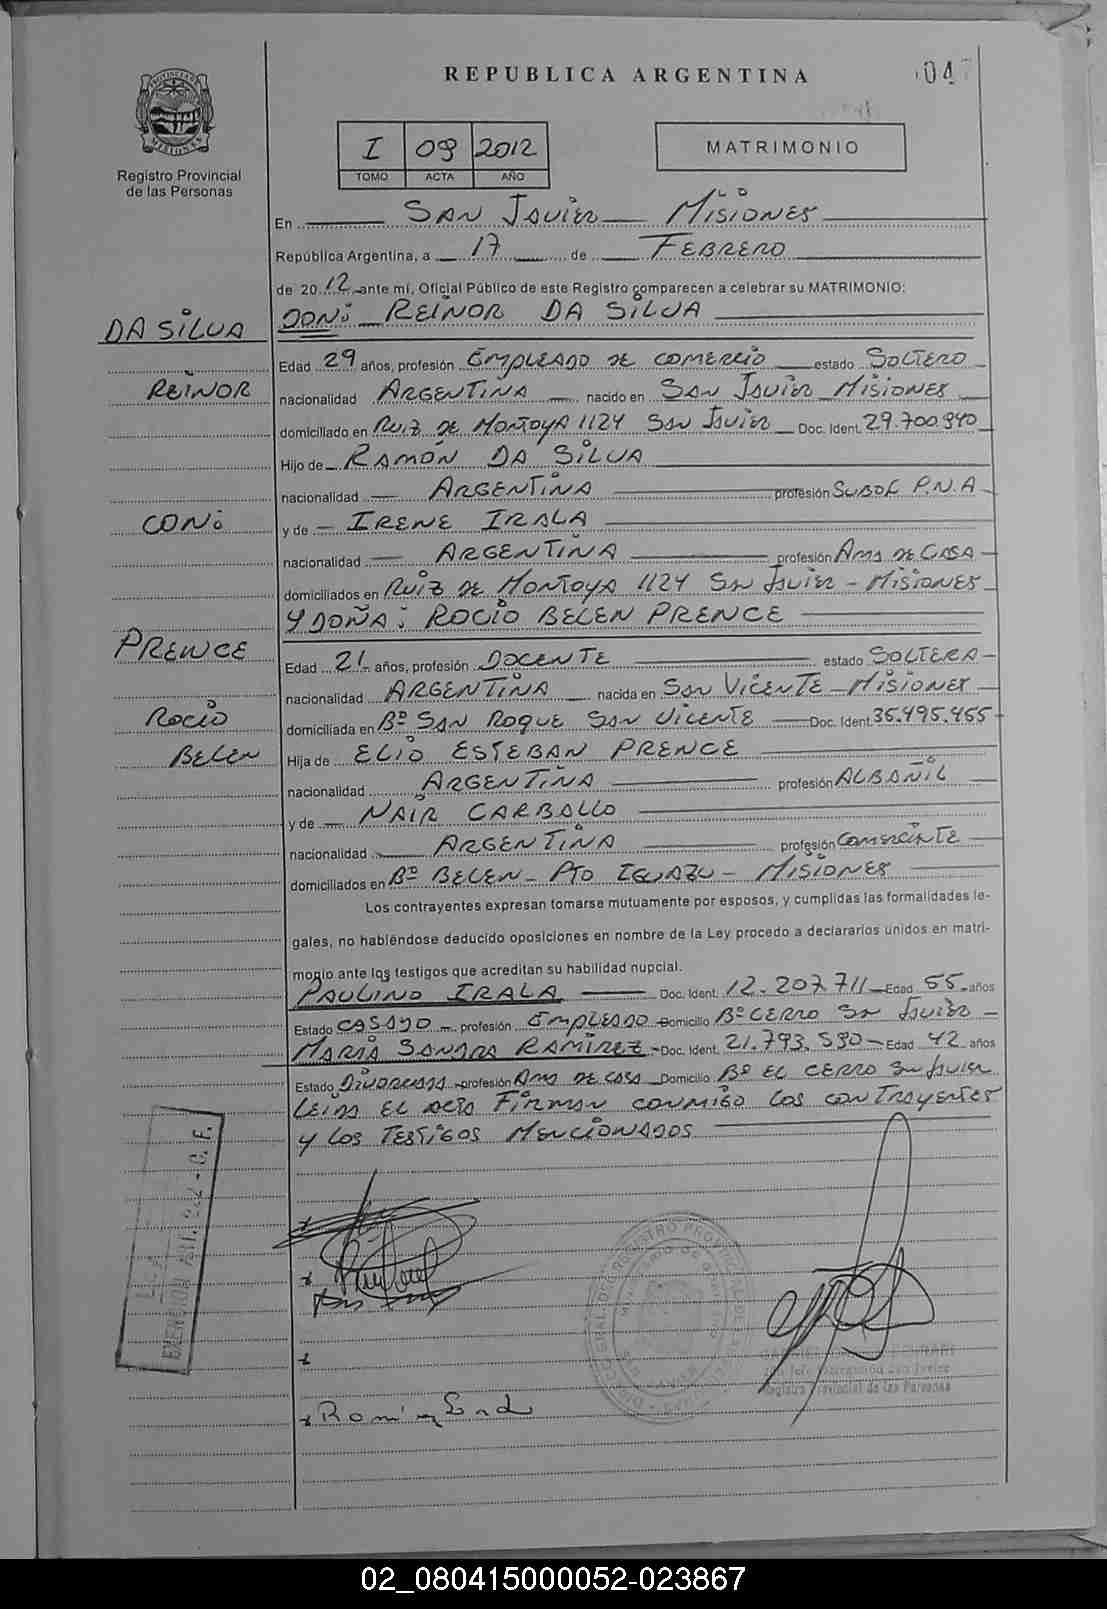 REPUBLICA ARGENTINA
047
PROVINCIA DE MISIONES
Registro Provincial
de las Personas
I 09 2012
TOMO ACTA AÑO
MATRIMONIO
En SAN JAVIER MISIONES
República Argentina, a 17 de FEBRERO
de 2012 ante mí, Oficial Público de este Registro comparecen a celebrar su MATRIMONIO:
DA SILVA
DON: REINOR DA SILVA
Edad 29 años, profesión EMPLEADO DE COMERCIO estado SOLTERO
REINOR
nacionalidad ARGENTINA nacido en SAN JAVIER MISIONES
domiciliado en RUIZ DE MONTOYA 1124 SAN JAVIER Doc. Ident. 29.700.940
Hijo de RAMÓN DA SILVA
nacionalidad ARGENTINA profesión SUBOF P.N.A
CON:
y de IRENE IRALA
nacionalidad ARGENTINA profesión AMA DE CASA
domiciliados en RUIZ DE MONTOYA 1124 SAN JAVIER - MISIONES
Y DOÑA: ROCIO BELEN PRENCE
PRENCE
Edad 21 años, profesión DOCENTE estado SOLTERA
nacionalidad ARGENTINA nacida en SAN VICENTE - MISIONES
ROCIO
domiciliada en Bº SAN ROQUE SAN VICENTE Doc. Ident. 35.495.455
BELEN
Hija de ELIO ESTEBAN PRENCE
nacionalidad ARGENTINA profesión ALBAÑIL
y de NAIR CARBALLO
nacionalidad ARGENTINA profesión COMERCIANTE
domiciliados en Bº BELEN - PTO IGUAZU - MISIONES
Los contrayentes expresan tomarse mutuamente por esposos, y cumplidas las formalidades le-
gales, no habiéndose deducido oposiciones en nombre de la Ley procedo a declararlos unidos en matri-
monio ante los testigos que acreditan su habilidad nupcial.
PAULINO IRALA Doc. Ident. 12.207.711 Edad 55 años
Estado CASADO profesión EMPLEADO Domicilio Bº CERRO SAN JAVIER
MARIA SANDRA RAMIREZ Doc. Ident. 21.793.530 Edad 42 años
Estado DIVORCIADA profesión AMA DE CASA Domicilio Bº EL CERRO SAN JAVIER
LEIDA EL ACTA FIRMAN CONMIGO LOS CONTRAYENTES
Y LOS TESTIGOS MENCIONADOS
EXENCION ART. 242 - C. F.
Registro Provincial de las Personas
02_080415000052-023867